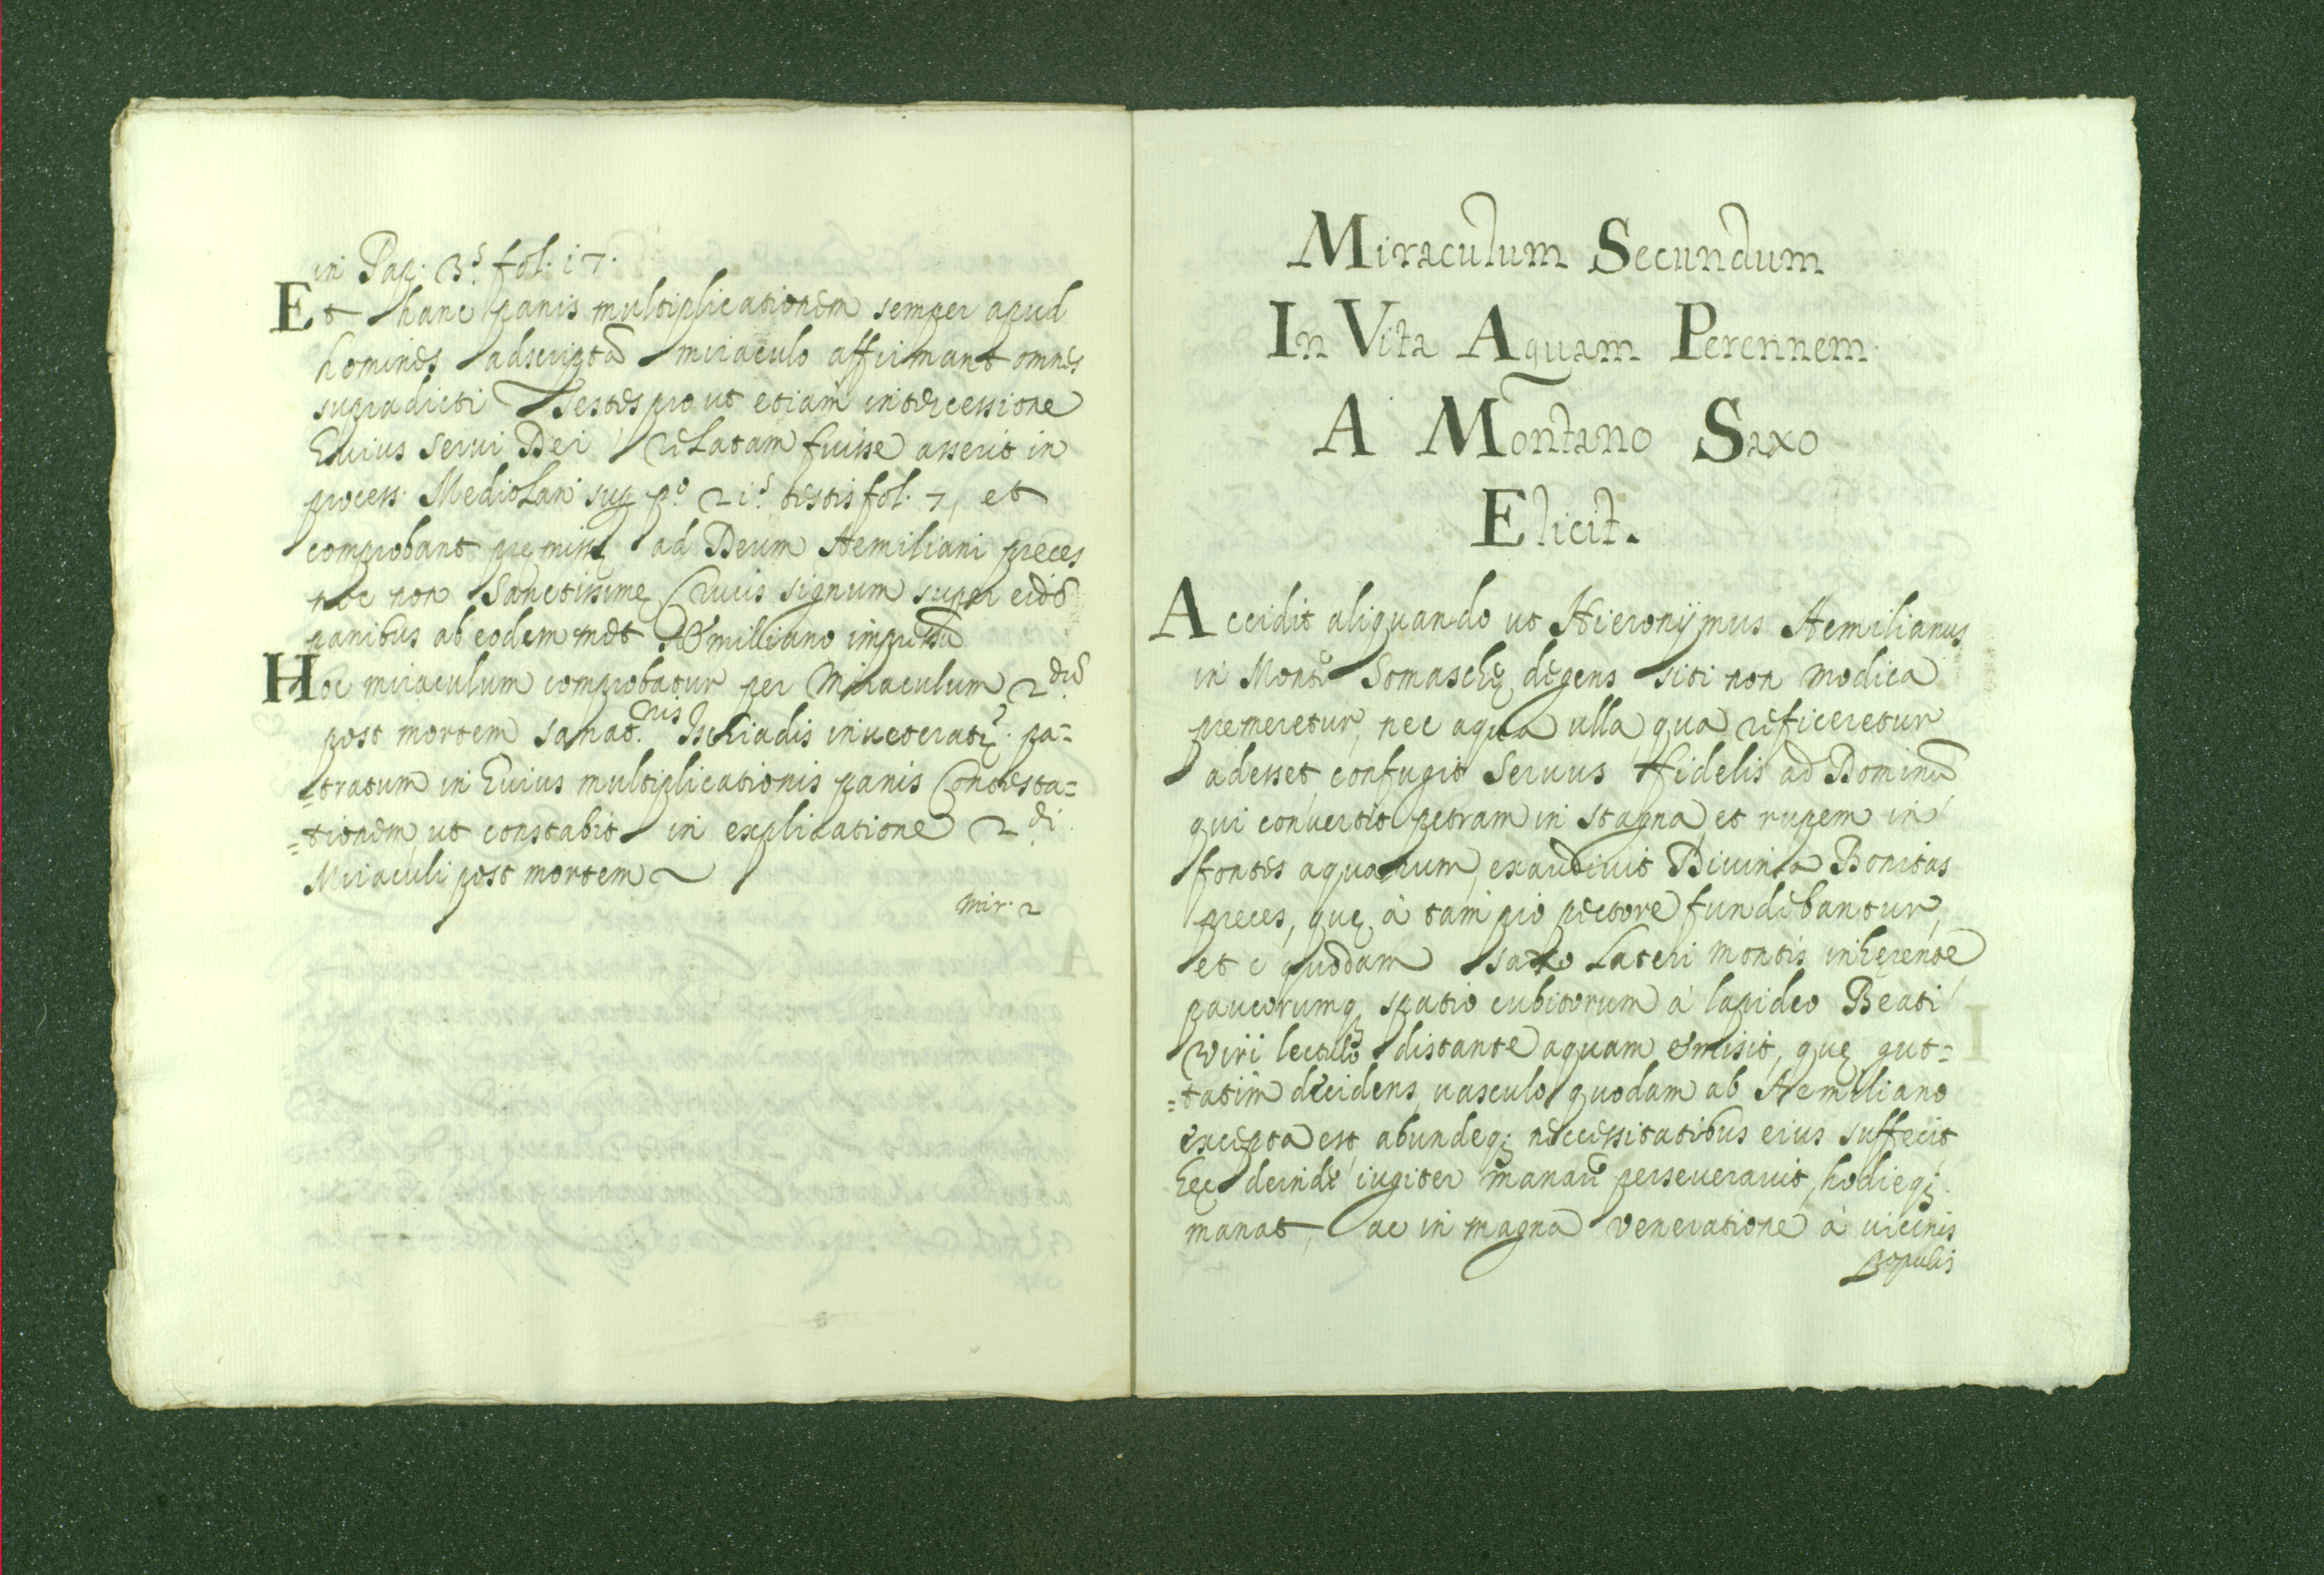 in Pap: 3.s fol. 17.
Et hanc panis multiplicationem semper apud
homines adscriptã miraculo affirmant omnes
supradicti Testes pro ut etiam intercessione
huius serui Dei relatam fuisse asserit in
process: Mediolani sup pº 21.s testis fol. 7, et
comprobant premissę ad Deum Aemiliani preces
nec non Sanctissimę Crucis signum super eisdẽ
panibus ab eodem met Aemiliano impressũ
Hoc miraculum comprobatur per Miraculum 2.dũ
post mortem sanat.nis Ischiadis inueteratę pa=
=tratum in huius multiplicationis panis Contesta=
=tionem, ut constabit in explicatione 2.di
Miraculi post mortem
Mir. 2
Miraculum Secundum
In Vita Aquam Perennem
A Montano Saxo
Elicit.
Accidit aliquando ut Hieronÿmus Aemilianus
in Monte Somaschę degens siti non modica
premeretur, nec aqua ulla qua reficeretur
adesset, confugit Seruus fidelis ad Dominũ
qui conuertit petram in stagna et rupem in
fontes aquarum, exaudiuit Diuina Bonitas
preces, quę à tam pio pectore fundebantur,
et è quodam saxo Lateri montis inhęrente
paucorumq spatio cubitorum à lapideo Beati
viri lectulo distante aquam emisit, quę gut=
=tatim decidens, uasculo quodam ab Aemiliano
excepta est, abundeq; neccessitatibus eius suffecit
hęc deinde iugiter manarẽ perseuerauit, hodieq;
manat, ac in magna veneratione à uicinis
populis